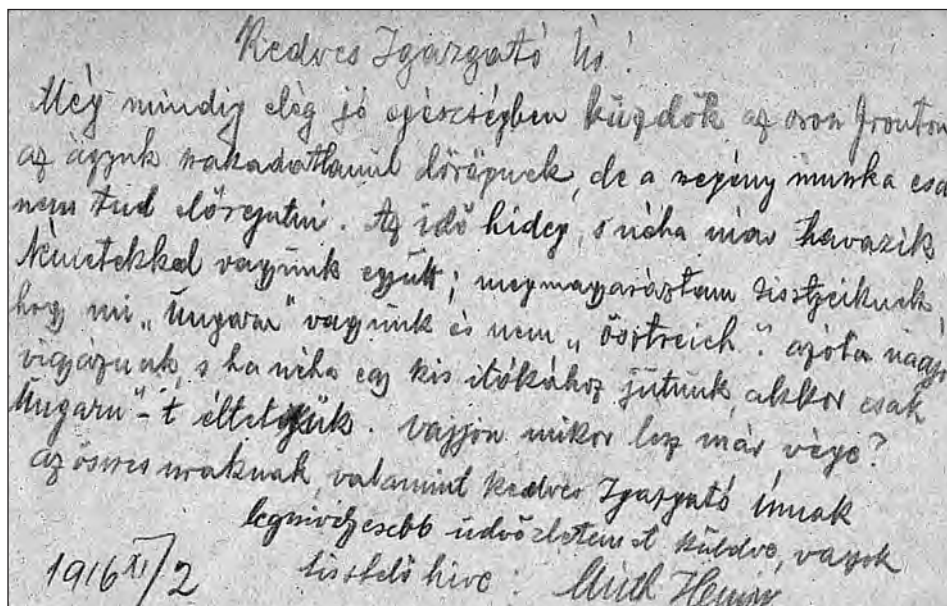 Kedves Igazgató Úr!
Még mindig elég jó egészségben küzdök az orosz fronton
az ágyuk szakadatlanul dörögnek, de a szegény muszka csak
nem tud előrejutni. Az idő hideg, s néha már havazik
Németekkel vagyunk együtt; megmagyaráztam tisztjeiknek,
hogy mi „Ungarn” vagyunk és nem „östreich”. azóta nagyon
vigyáznak, s ha néha egy kis itókához jutunk, akkor csak
Ungarn”-t éltetjük. vajjon mikor lesz már vége?
az összes uraknak, valamint kedves Igazgató Úrnak
legszivélyesebb üdvözletemet küldve, vagyok
1916 XI/2 tisztelő hive: